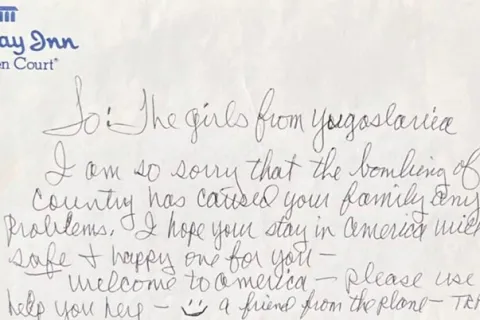 ay Inn
n Court®
To: The girls from Yugoslavia
I am so sorry that the bombing of
country has caused your family any
problems. I hope your stay in America will
safe + happy one for you —
welcome to America — please use
help you here — a friend from the plane —